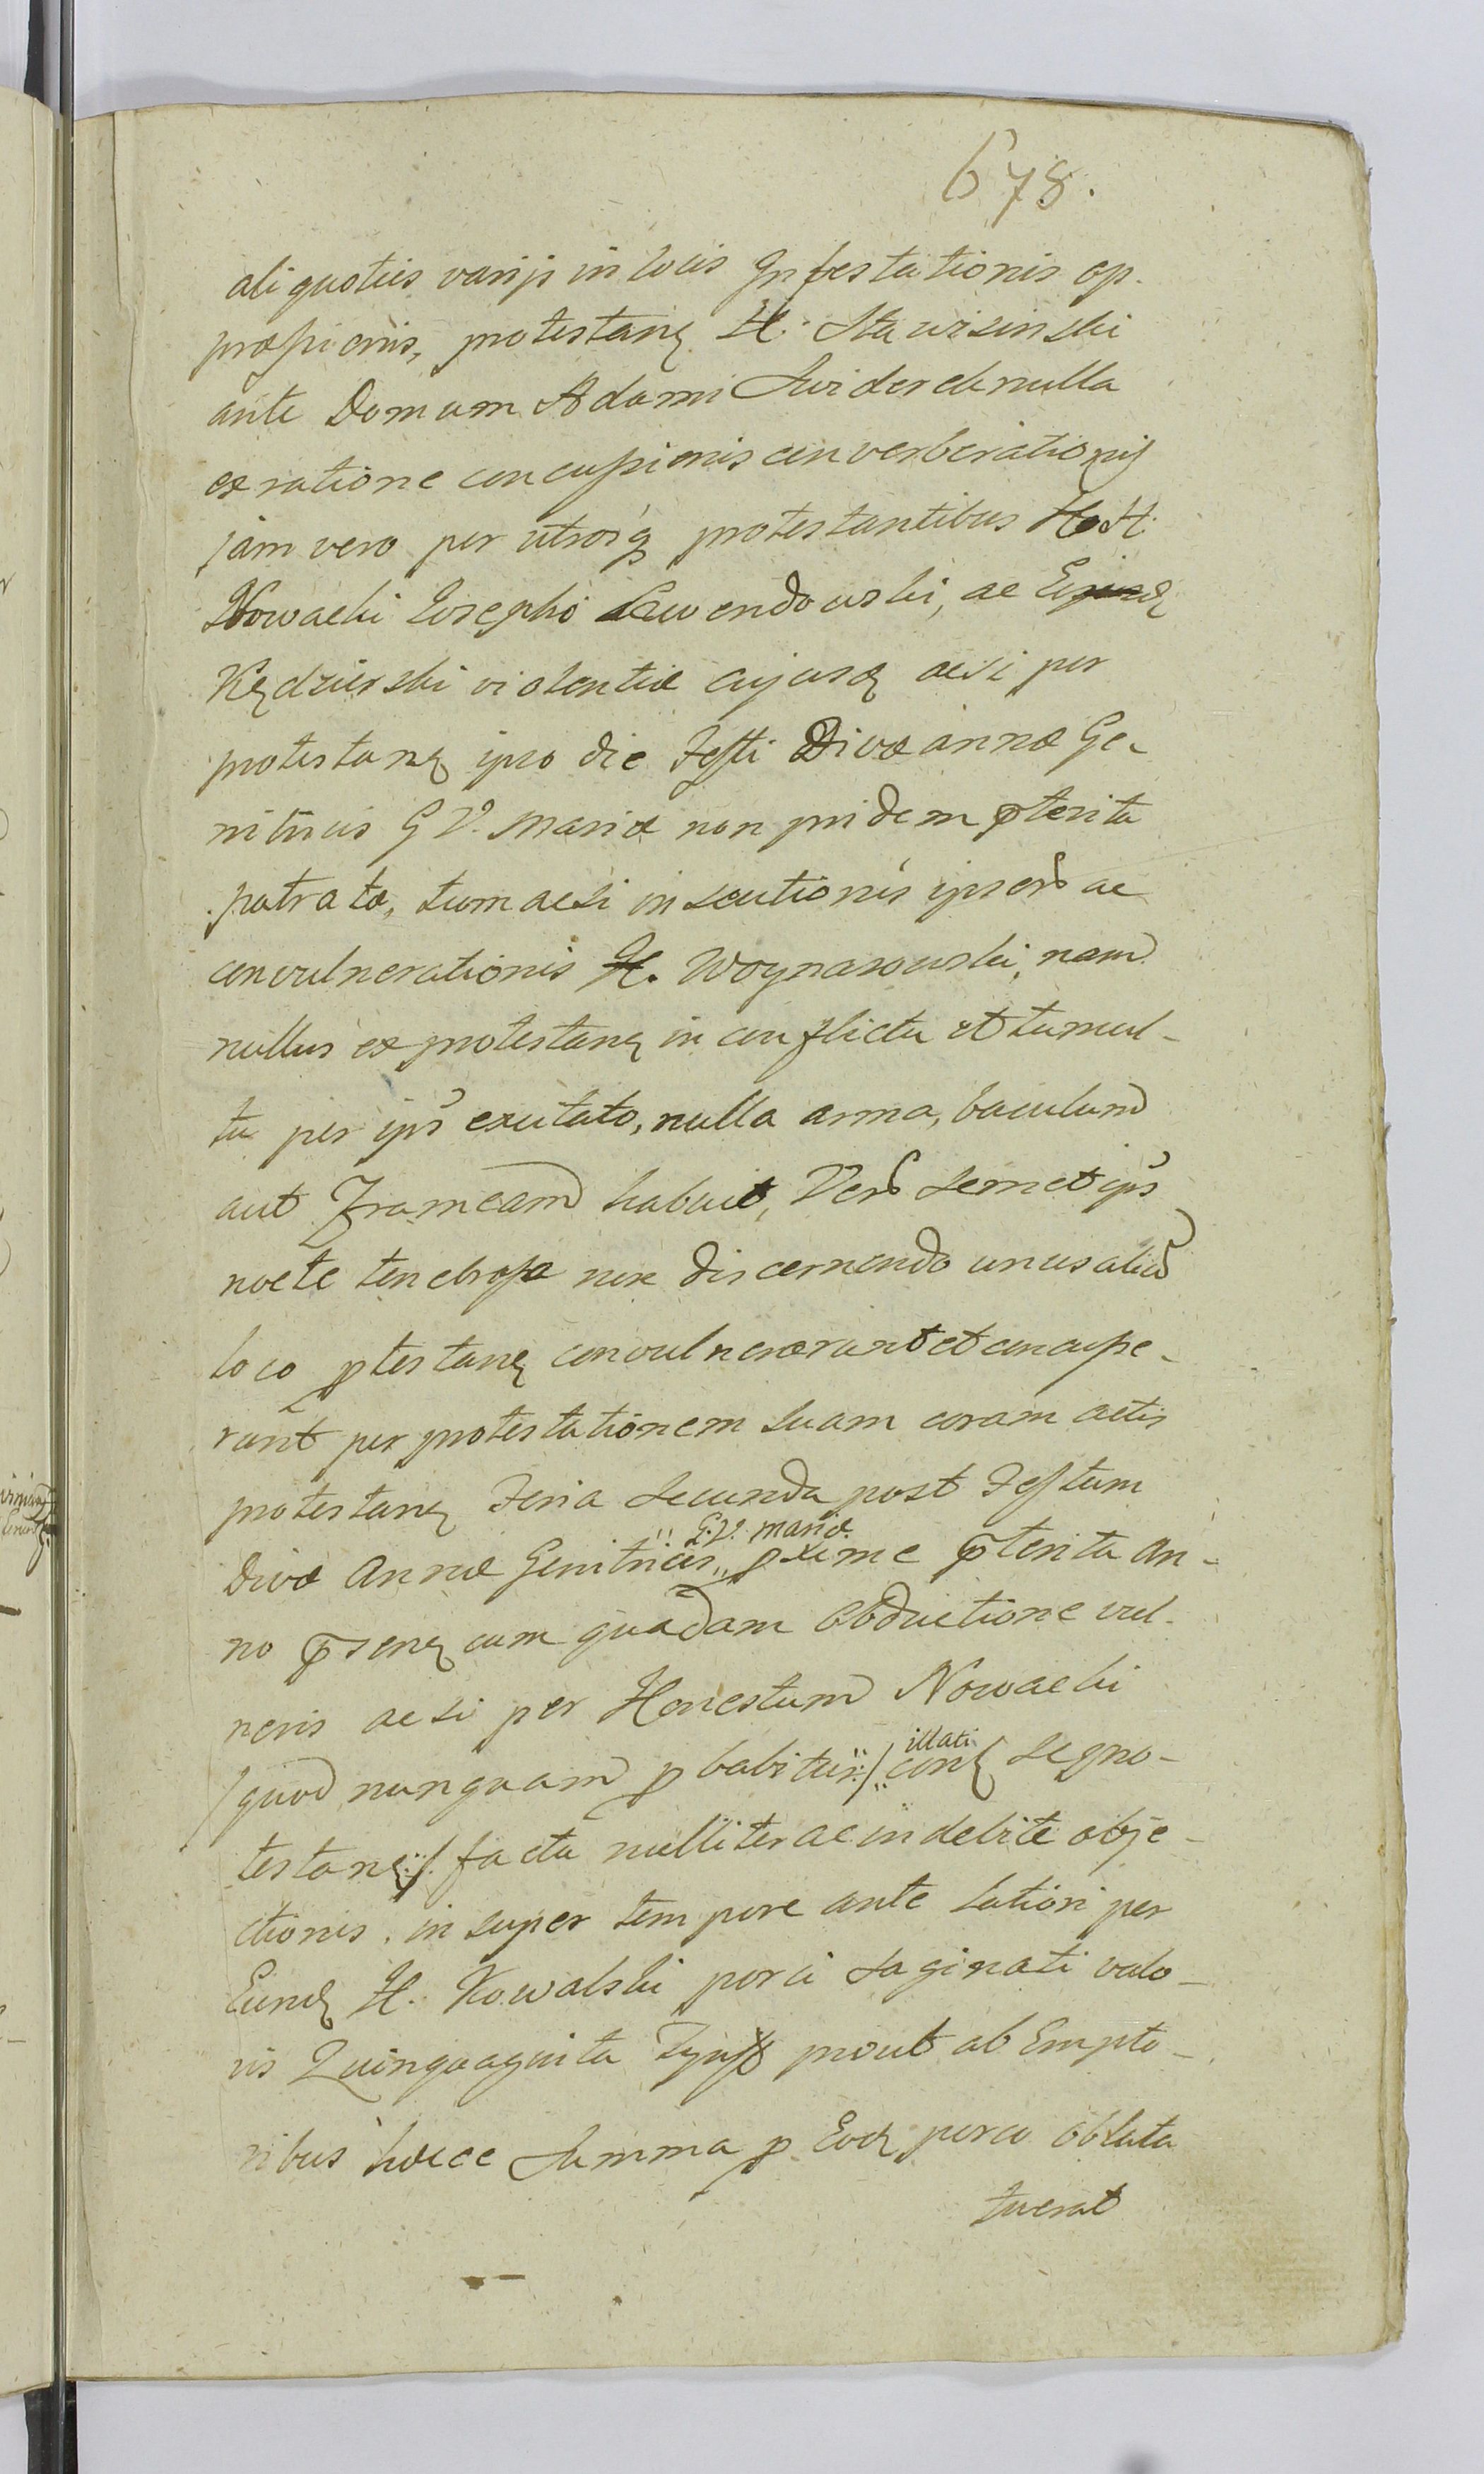 678.
aliquoties varijs in locis Infestationis op-
pressionis, protestanẹ H. Stawisinski
ante Domum Adami Swiderek nulla
ex ratione concussionis converberationis
jam vero per utrosq protestantibus HoH:
Nowacki Josepho Lewendowski, ac
Kędzierski violentiæ cujusd acsi per
protestanẹ ipso die Festi Divæ annæ Ge-
nitricis G V. Mariæ non pridem pterita
patratæ, tum acsi insecutionis ipsor ac
convulnerationis H. Woynarowski, nam
nullus ex protestanẹ in conflictu et tumul-
tu per ips excitato, nulla arma, baculum
aut Frameam habuit, Ver semet ips
nocte tenebrosa non discernendo unus aliu
loco ptestanẹ convulnerarunt et concusse-
runt per protestationem suam coram actis
protestanẹ Feria secunda post Festum
Divæ Annæ Genitricis,, G.V. Mariæ. pxime pterita An-
no psenẹ cum quadam obductione vul-
neris acsi per Honestum Nowacki
/quod nunquam pbabitur:/ illati conẹ se pro-
testanẹ:/ facta nulliter ac indebite obje-
ctionis. in super tempore ante lationi per
Eund H. Kowalski porci saginati valo-
ris Quinquaginta Tynff prout ab Empto-
ribus hæcce Summa p Eod porco oblata
fuerat